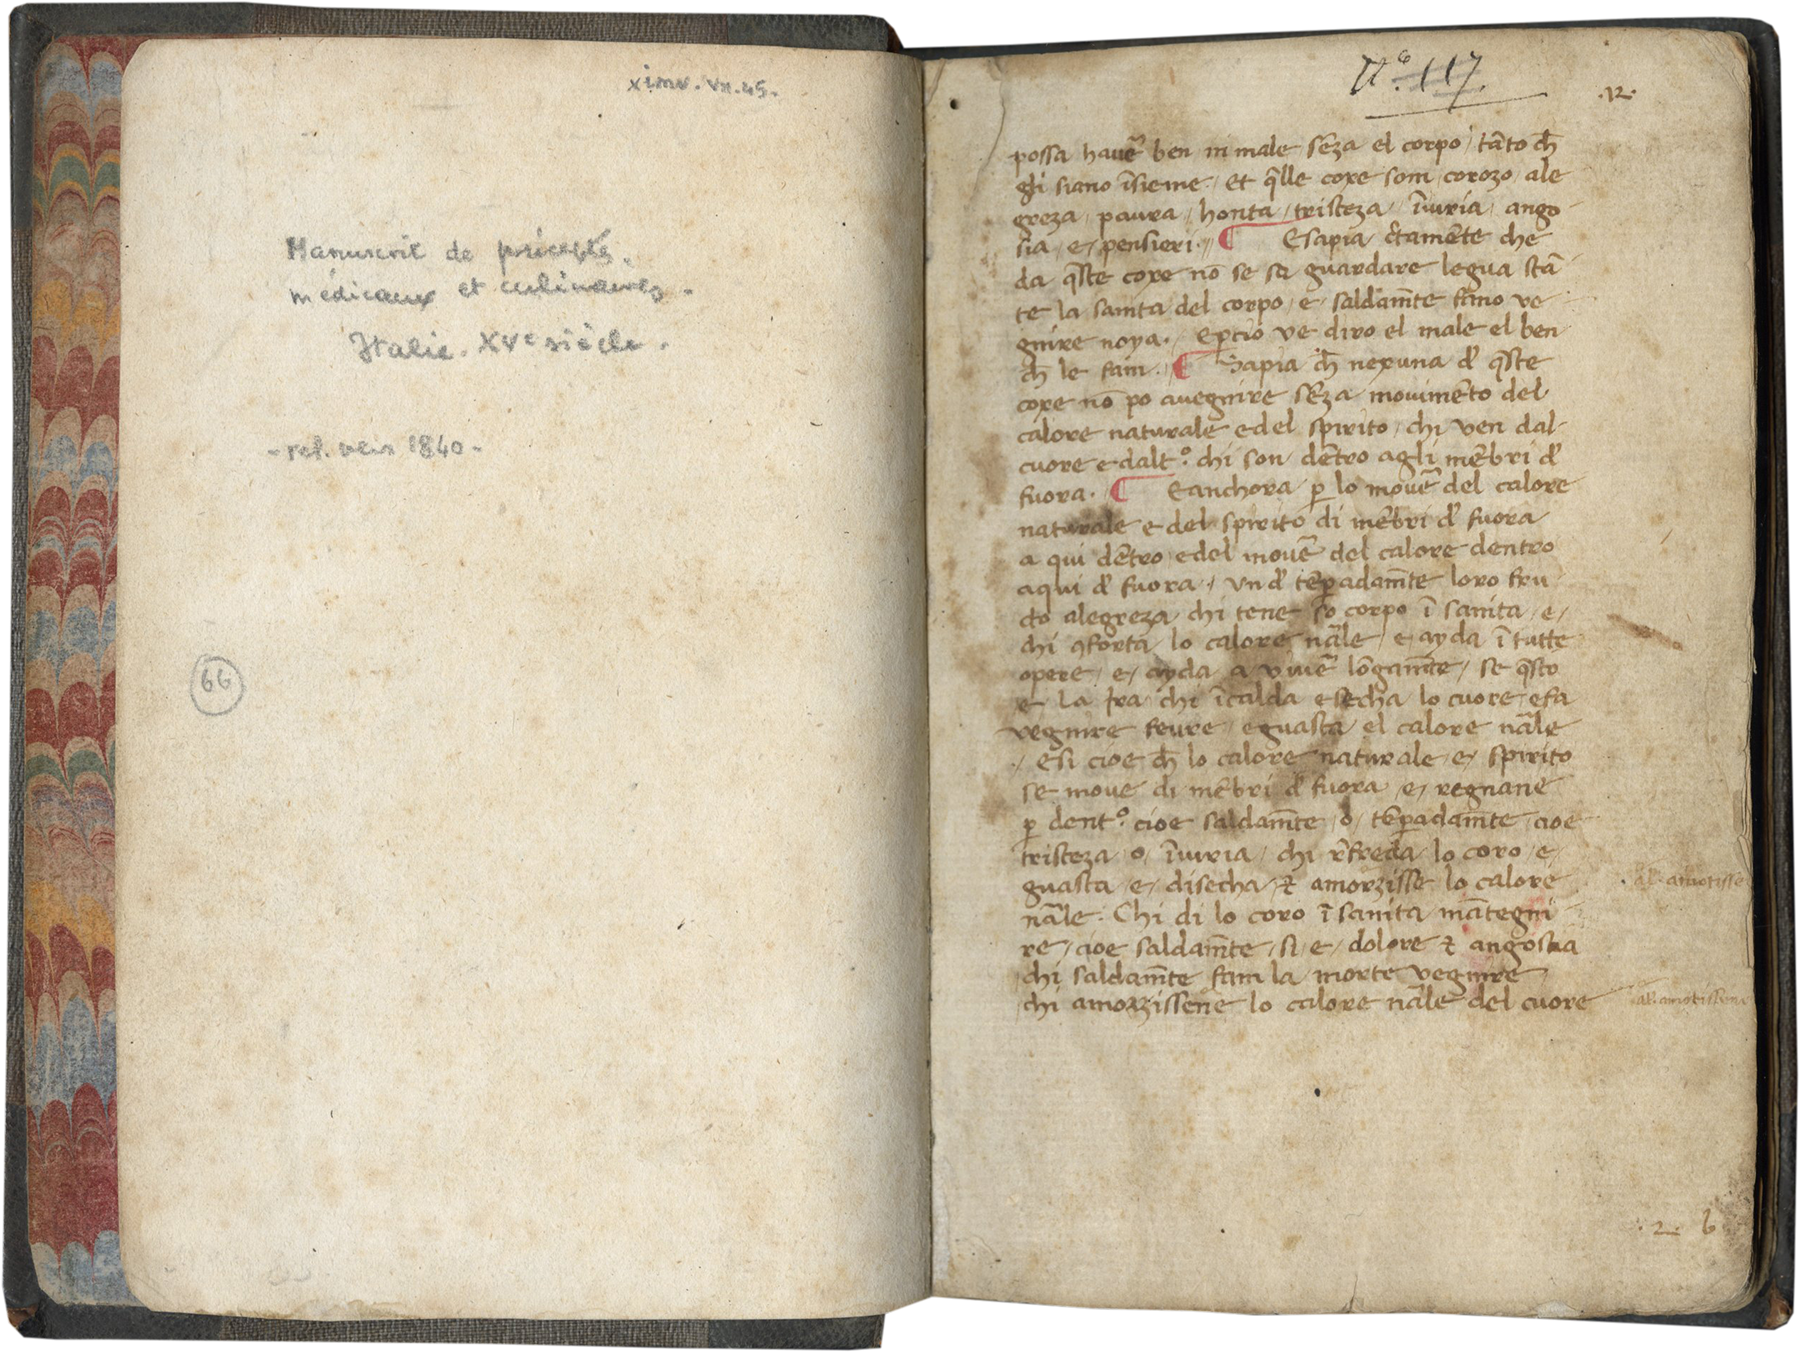 ximv. vii. 45.
Manuscrit de préceptes
médicaux et culinaires.
Italie. XVe siècle.
- rel. vers 1840 -
66
No. 117.
.12.
possa havē ben ni male sēza el corpo / tāto ch̄
gli siano īsieme. Et q̄lle coxe som corozo ale
greza / paura / honta / tristeza / īiuria / ango
sia / e / pensieri. ¶ Esapia c̄tamēte che
da q̄ste coxe nō se sa guardare legua stā
te la sanita del corpo / e / saldam̄te fāno ve
gnire noya. / Ep̄cio ve diro el male el ben
ch̄ le fam. ¶ Sapia ch̄ nexuna d̄ q̄ste
coxe nō po avegnire sēza movimēto del
calore naturale e del spirito / chi ven dal
cuore e dalt.º chi son dētro agli mēbri d̄
fuora. ¶ E anchora p̄ lo movē del calore
naturale e del spirito di mēbri d̄ fuora
a qui dētro e del movē del calore dentro
aqui d̄ fuora. / Un d̄ tēp̄adam̄te loro fru
cto alegreza / chi tene so corpo ī sanita / e /
chi ꝯforta / lo calore nāle / e ayda ī tutte
opere / e / ayda a vivē lōgam̄te / se q̄sto
e La Ira chi īcalda e secha lo cuore e fa
vegnire fevre / e guasta el calore nāle
/ Esi cioe ch̄ lo calore naturale / e / spirito
se move di mēbri d̄ fuora / e / regnane
p̄ dent.º cioe saldam̄te / o / tēp̄adam̄te / cioe
tristeza / o / īiuria / chi r̄freda lo coro / e /
guasta / e / disecha / ⁊ amorzisse lo calore
nāle. Chi di lo coro ī sanita mātegni
re / cioe saldam̄te / si / e / dolore ⁊ angossa
chi saldam̄te fam la morte vegnire
chi amorzissene lo calore nāle del cuore
al. amortisse
al. amortissene
.2. b